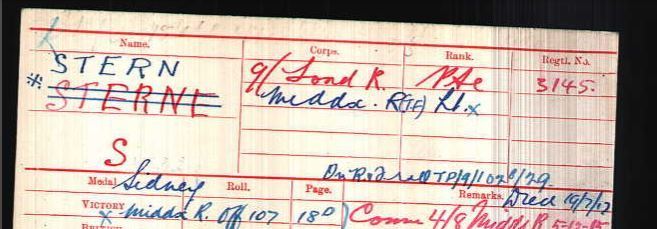 Name. Corps. Rank. Regtl. No.
STERN 9/Lond R. Pte 3145.
* STERNE Middx. R(TF) Lt. x
S
Sidney
Medal Roll. Page. Remarks. Died 19/7/17
VICTORY x Middx R. Off 107 180 Comm 4/8 Middx R 5-12-15